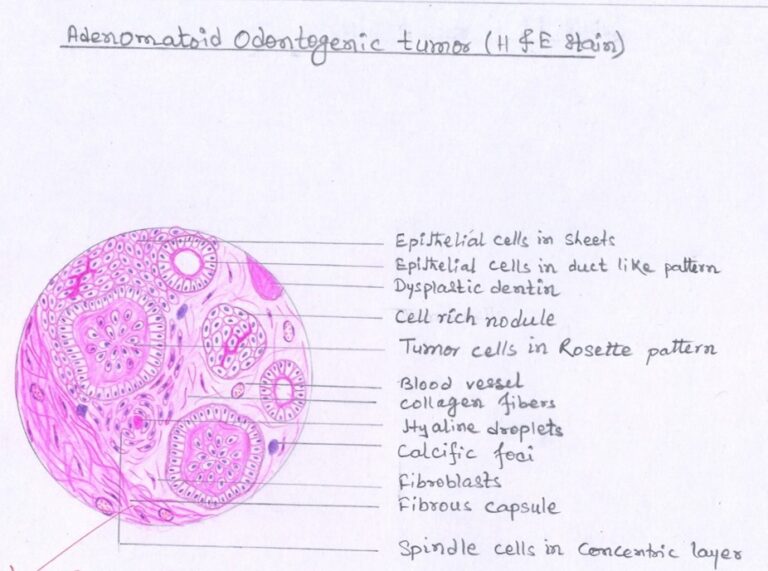 Adenomatoid Odontogenic tumor (H & E stain)
Epithelial cells in sheets
Epithelial cells in duct like pattern
Dysplastic dentin
Cell rich nodule
Tumor cells in Rosette pattern
Blood vessel
collagen fibers
Hyaline droplets
Calcific foai
Fibroblasts
Fibrous capsule
Spindle cells in concentric layer